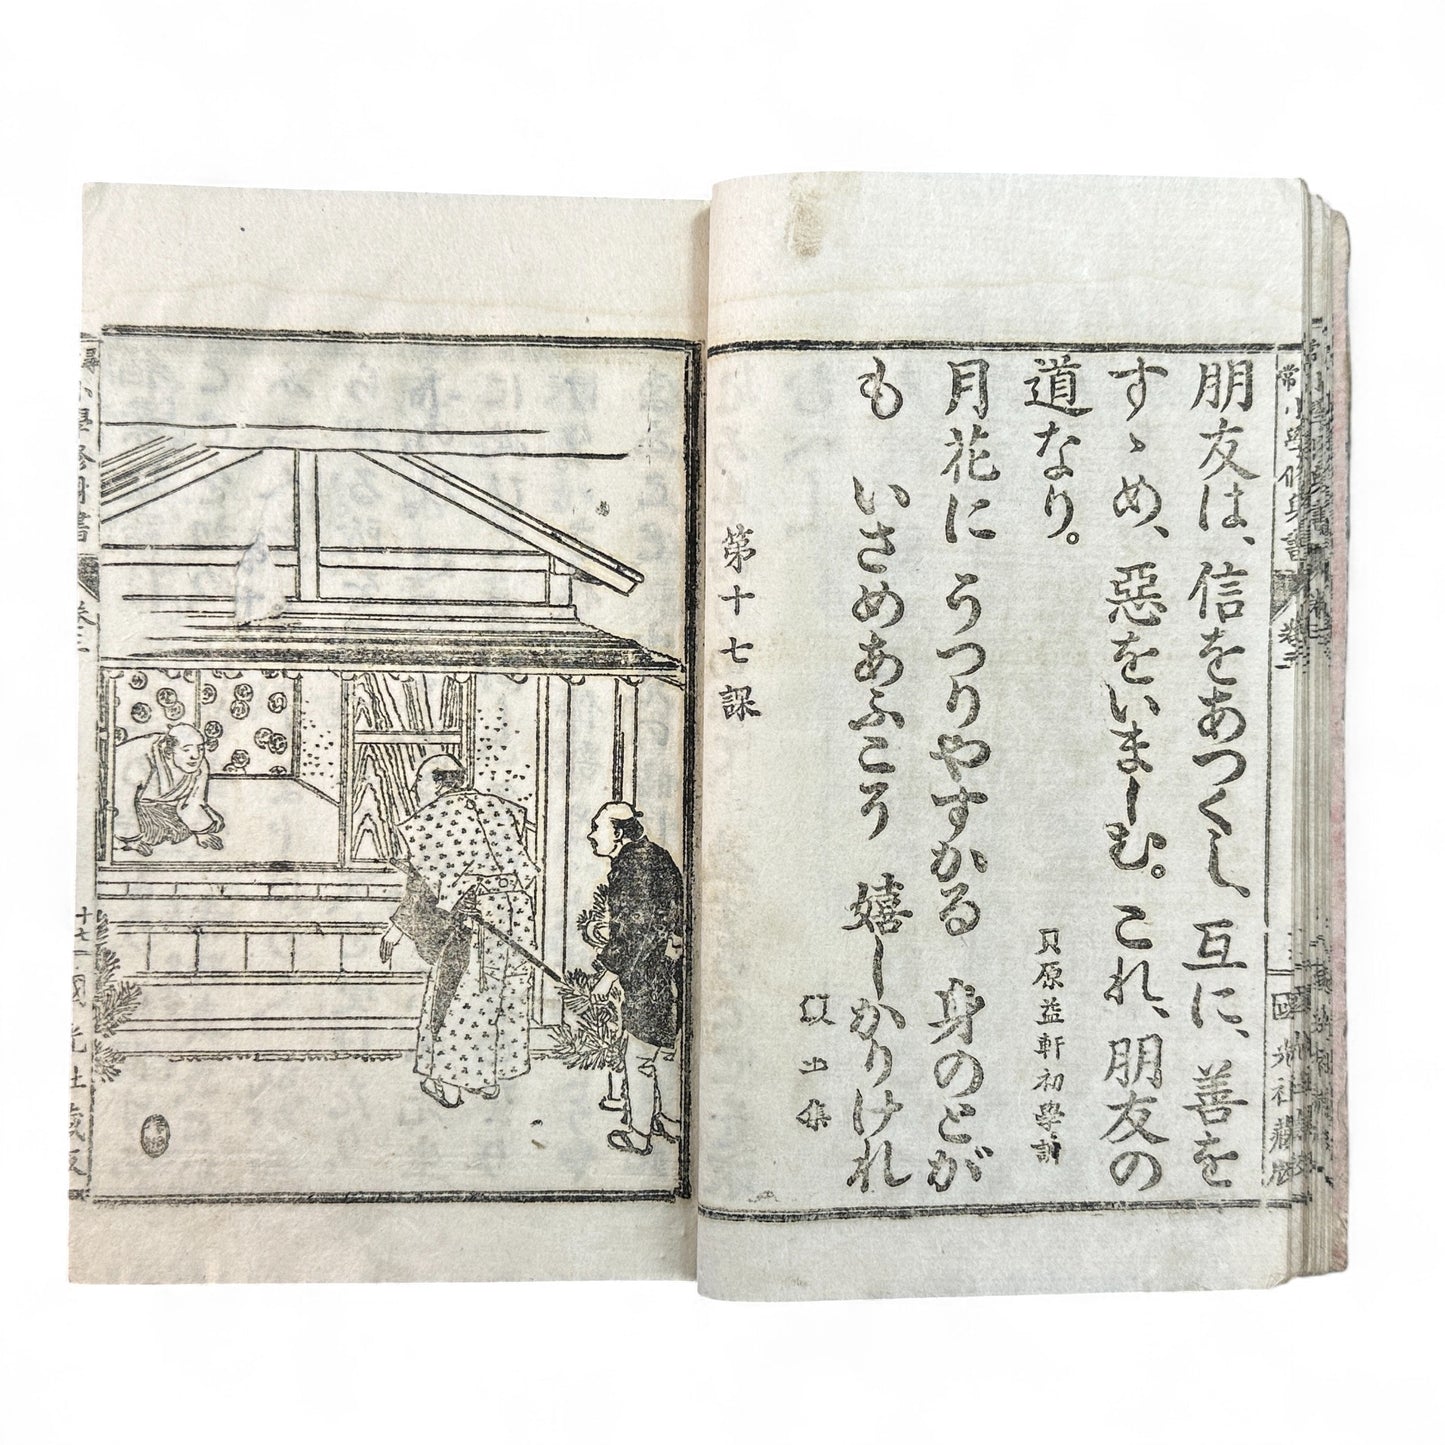 朋友は、信をあつくし、互に、善を
すゝめ、惡をいましむ。これ、朋友の
道なり。
貝原益軒初學訓
月花に うつりやすかる 身のとが
も いさめあふこそ 嬉しかりけれ
第十七課
尋常小學修身書 卷三
國光社藏版
小學修身書 卷三
十七 國光社藏版